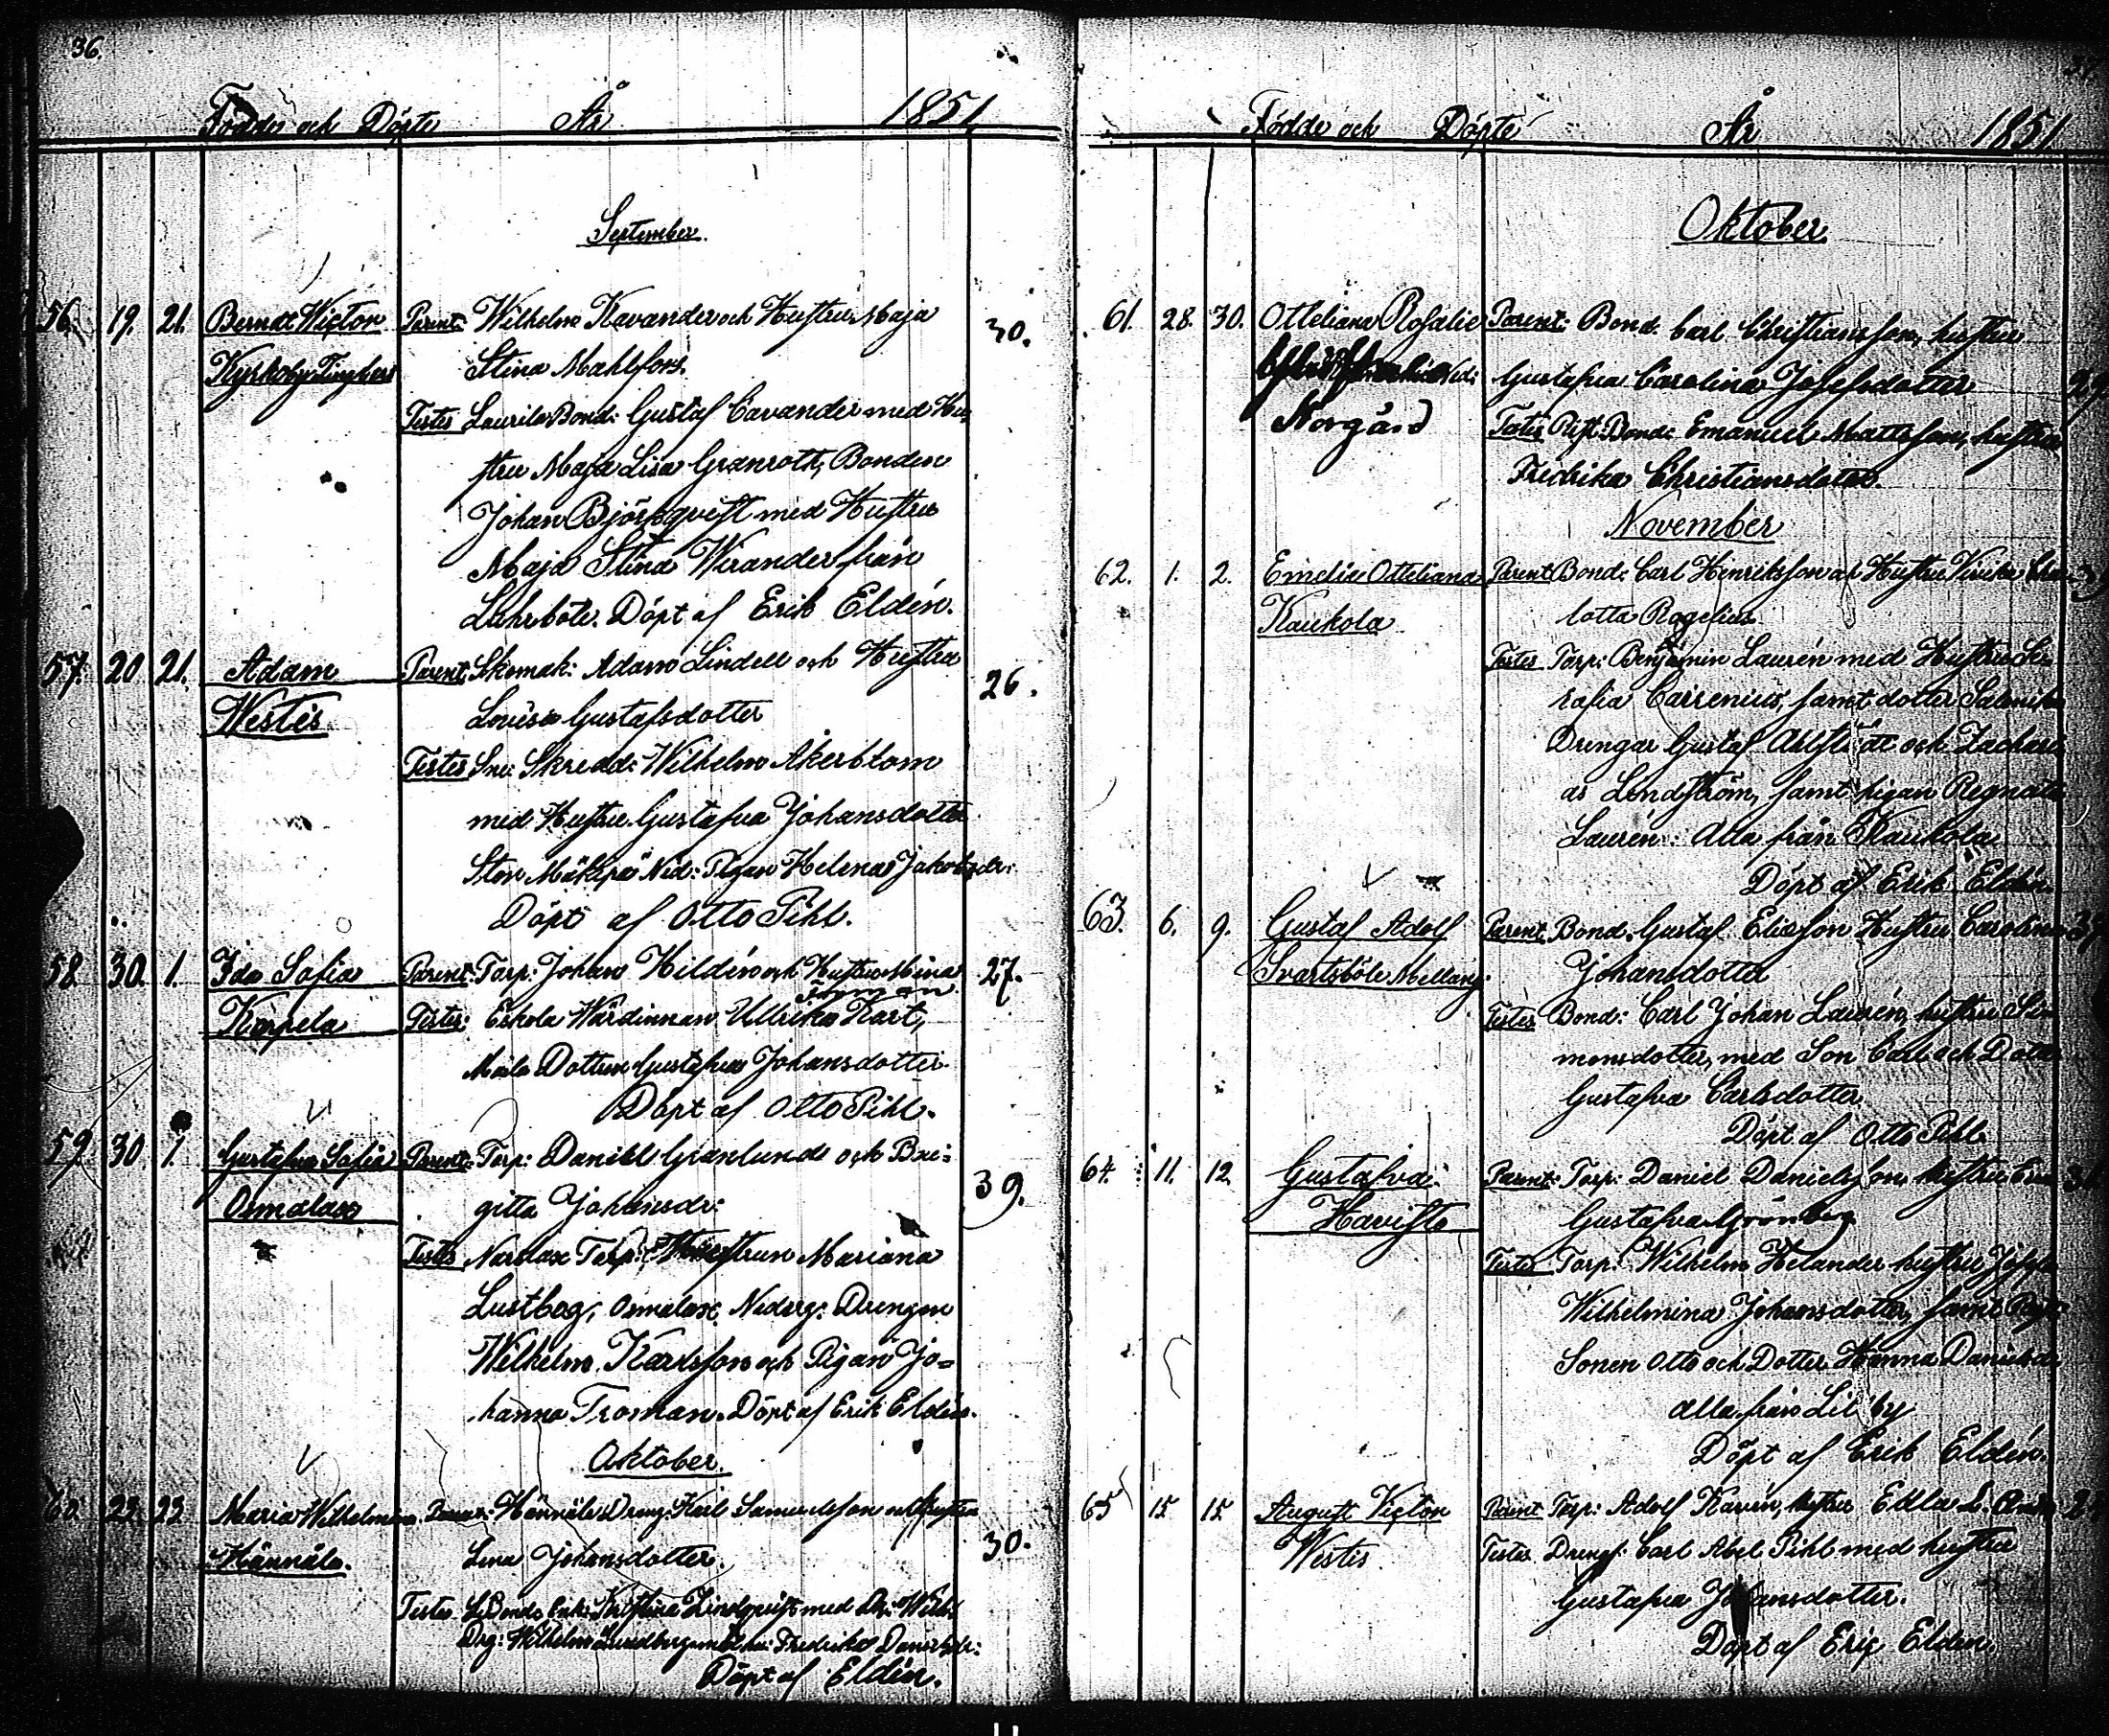 36.
Födde och Döpte År 1851
September
56. 19. 21. Berndt Wictor Parent: Wilhelm Kavander och Hustru Maja 30.
Kyrkoby Stina Mahlfors.
Testes Laurila Bond: Gustaf Cavander med Hu-
stru Maja Lisa Granroth, Bonden
Johan Björkqvist med Hustru
Maja Stina Wirander från
Lahrböle. Döpt af Erik Eldén.
57. 20 21. Adam Parent: Skomak: Adam Lindell och Hustru 26.
Westis Lovisa Gustafsdotter
Testes Skredd: Wilhelm Åkerblom
med Hustru Gustafva Johansdotter
Stor Mäkipä Ned: Pigan Helena Jakobsdr:
Döpt af Otto Pihl.
58. 30. 1. Ida Sofia Parent: Torp: Johan Hildén och Hustru Mina 27.
Troman
Karpela Testes: Eskola Wärdinnan Ullrika Kart,
Dottren Gustafva Johansdotter.
Döpt af Otto Pihl.
59. 30 1. Gustafva Sofia Parent: Torp: Daniel Granlund och Bri- 39.
Osmalax gitta Johansdr:
Testes Narslax Torp: Hustrun Mariana
Lustberg, Osmalax Nederg: Drengen
Wilhelm Karlsson och Pigan Jo-
hanna Troman. Döpt af Erik Eldén.
Oktober.
60. 22. 23. Maria Wilhelmina Parent: Hännälä Dreng: Karl Samuelsson och Hustru 30.
Hännälä. Lena Johansdotter.
Testes Bond: Enk: Kristina Lindqvist med
Drg: Wilhelm Lundberg Fredrika Danielsdr:
Döpt af Eldén.
Födde och Döpte År 1851
Oktober
61. 28. 30. Otteliana Rosalie Parent: Bond: Carl Christiansson, hustru 29
Ned: Gustafva Carolina Josefsdotter
Norrgård Testes Bond: Emanuel Mattsson, hustru
Fredrika Christiansdotter.
November
62. 1. 2. Emelie Otteliana Parent Bond: Carl Henriksson och Hustru Virika Char-
Kaukola lotta Rogelius
Testes Torp: Benjamin Laurén med Hustru Se-
rafia Carrenius, samt dotter
Drengar Gustaf Ahlstedt och Zachari-
as Lindström, samt pigan Regnata
Laurén: Alla från Kaukola
Döpt af Erik Eldén.
63. 6. 9. Gustaf Adolf Parent Bond. Gustaf Eliasson Hustru Carolina
Svartsböle Mellang: Johansdotter
Testes Bond: Carl Johan Laurén, hustru Si-
monsdotter, med Son Carl och Dotter
Gustafva Carlsdotter
Döpt af Otto Pihl
64. 11. 12. Gustafva Parent: Torp: Daniel Danielsson, hustru
Havisto Gustafva Grönberg
Testes Torp: Wilhelm Helander hustru
Wilhelmina Johansdotter, samt
Sonen Otto och Dotter Hanna Danielsdr
alla från Lilby
Döpt af Erik Eldén.
65 15 15 August Victor Parent Torp: Adolf Kavén, hustru Edla L.
Westis Testes Dreng: Carl Abel Pihl med hustru
Gustafva Johansdotter.
Döpt af Eric Eldén.